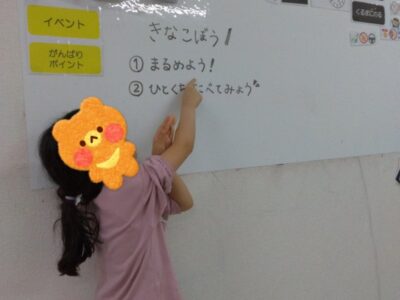 イベント
きなこぼう
がんばり
ポイント
① まるめよう!
② ひとくちたべてみよう
くるめどめる